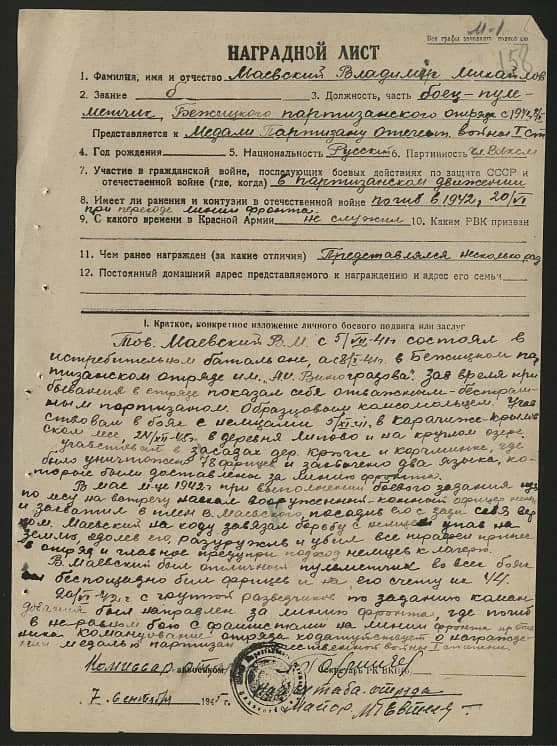 М-1
Все графы заполнять полностью
158
НАГРАДНОЙ ЛИСТ
1. Фамилия, имя и отчество Маевский Владимир Михайлов
2. Звание б 3. Должность, часть боец-пуле-
метчик, Бежицкого партизанского отряда с 1942
Представляется к Медали Партизану отечеств. войны I ст
4. Год рождения 5. Национальность Русский 6. Партийность чл. ВЛКСМ
7. Участие в гражданской войне, последующих боевых действиях по защите СССР и
отечественной войне (где, когда) в партизанском движении
8. Имеет ли ранения и контузии в отечественной войне погиб в 1942, 20/VI
при переходе линии фронта.
9. С какого времени в Красной Армии не служил 10. Каким РВК призван
11. Чем ранее награжден (за какие отличия) Представлялся несколько раз
12. Постоянный домашний адрес представляемого к награждению и адрес его семьи
I. Краткое, конкретное изложение личного боевого подвига или заслуг
Тов. Маевский В.М. с 5/VII-41г состоял в
истребительном батальоне, а с 8/ -41г. в Бежицком пар
тизанском отряде им. Виноградова". За время при
бывания в отряде показал себя отважным-бесстраш-
ным партизаном. Образцовым комсомольцем. Участ
ствовал в боях с немцами в
ском лесу, в деревня Липово и на круглом озере
участвовал в засадах дер. Крючье и где
было уничтожено 78 фрицев и захвачено два языка, ко-
торые были доставлены за линию фронта.
В мае м-це 1942г при выполнении боевого задания
по лесу на встречу наскочил вооруженный-конный офицер немец
и захватил в плен В. Маевского, посадив его с зади себя вер
хом. Маевский на ходу завязал борьбу с немцем упав на
землю, одолев его, разоружив и убил все трофеи принес
в отряд и главное предупредил подход немцев к лагерю.
В. Маевский был отличный пулеметчик во всех боях
беспощадно бил фрицев и на его счету их 44.
20/VI-42г. с группой разведчиков по заданию коман
дования был направлен за линию фронта, где погиб
в неравном бою с фашистами на линии фронта против
ника Командование отряда ходатайствует о награжде
нии медалью партизан отечественной войны I степени
Комиссар
военком Секретарь РК ВКП(б)
Нач. штаба отряда
7 сентября 194 г. Майор